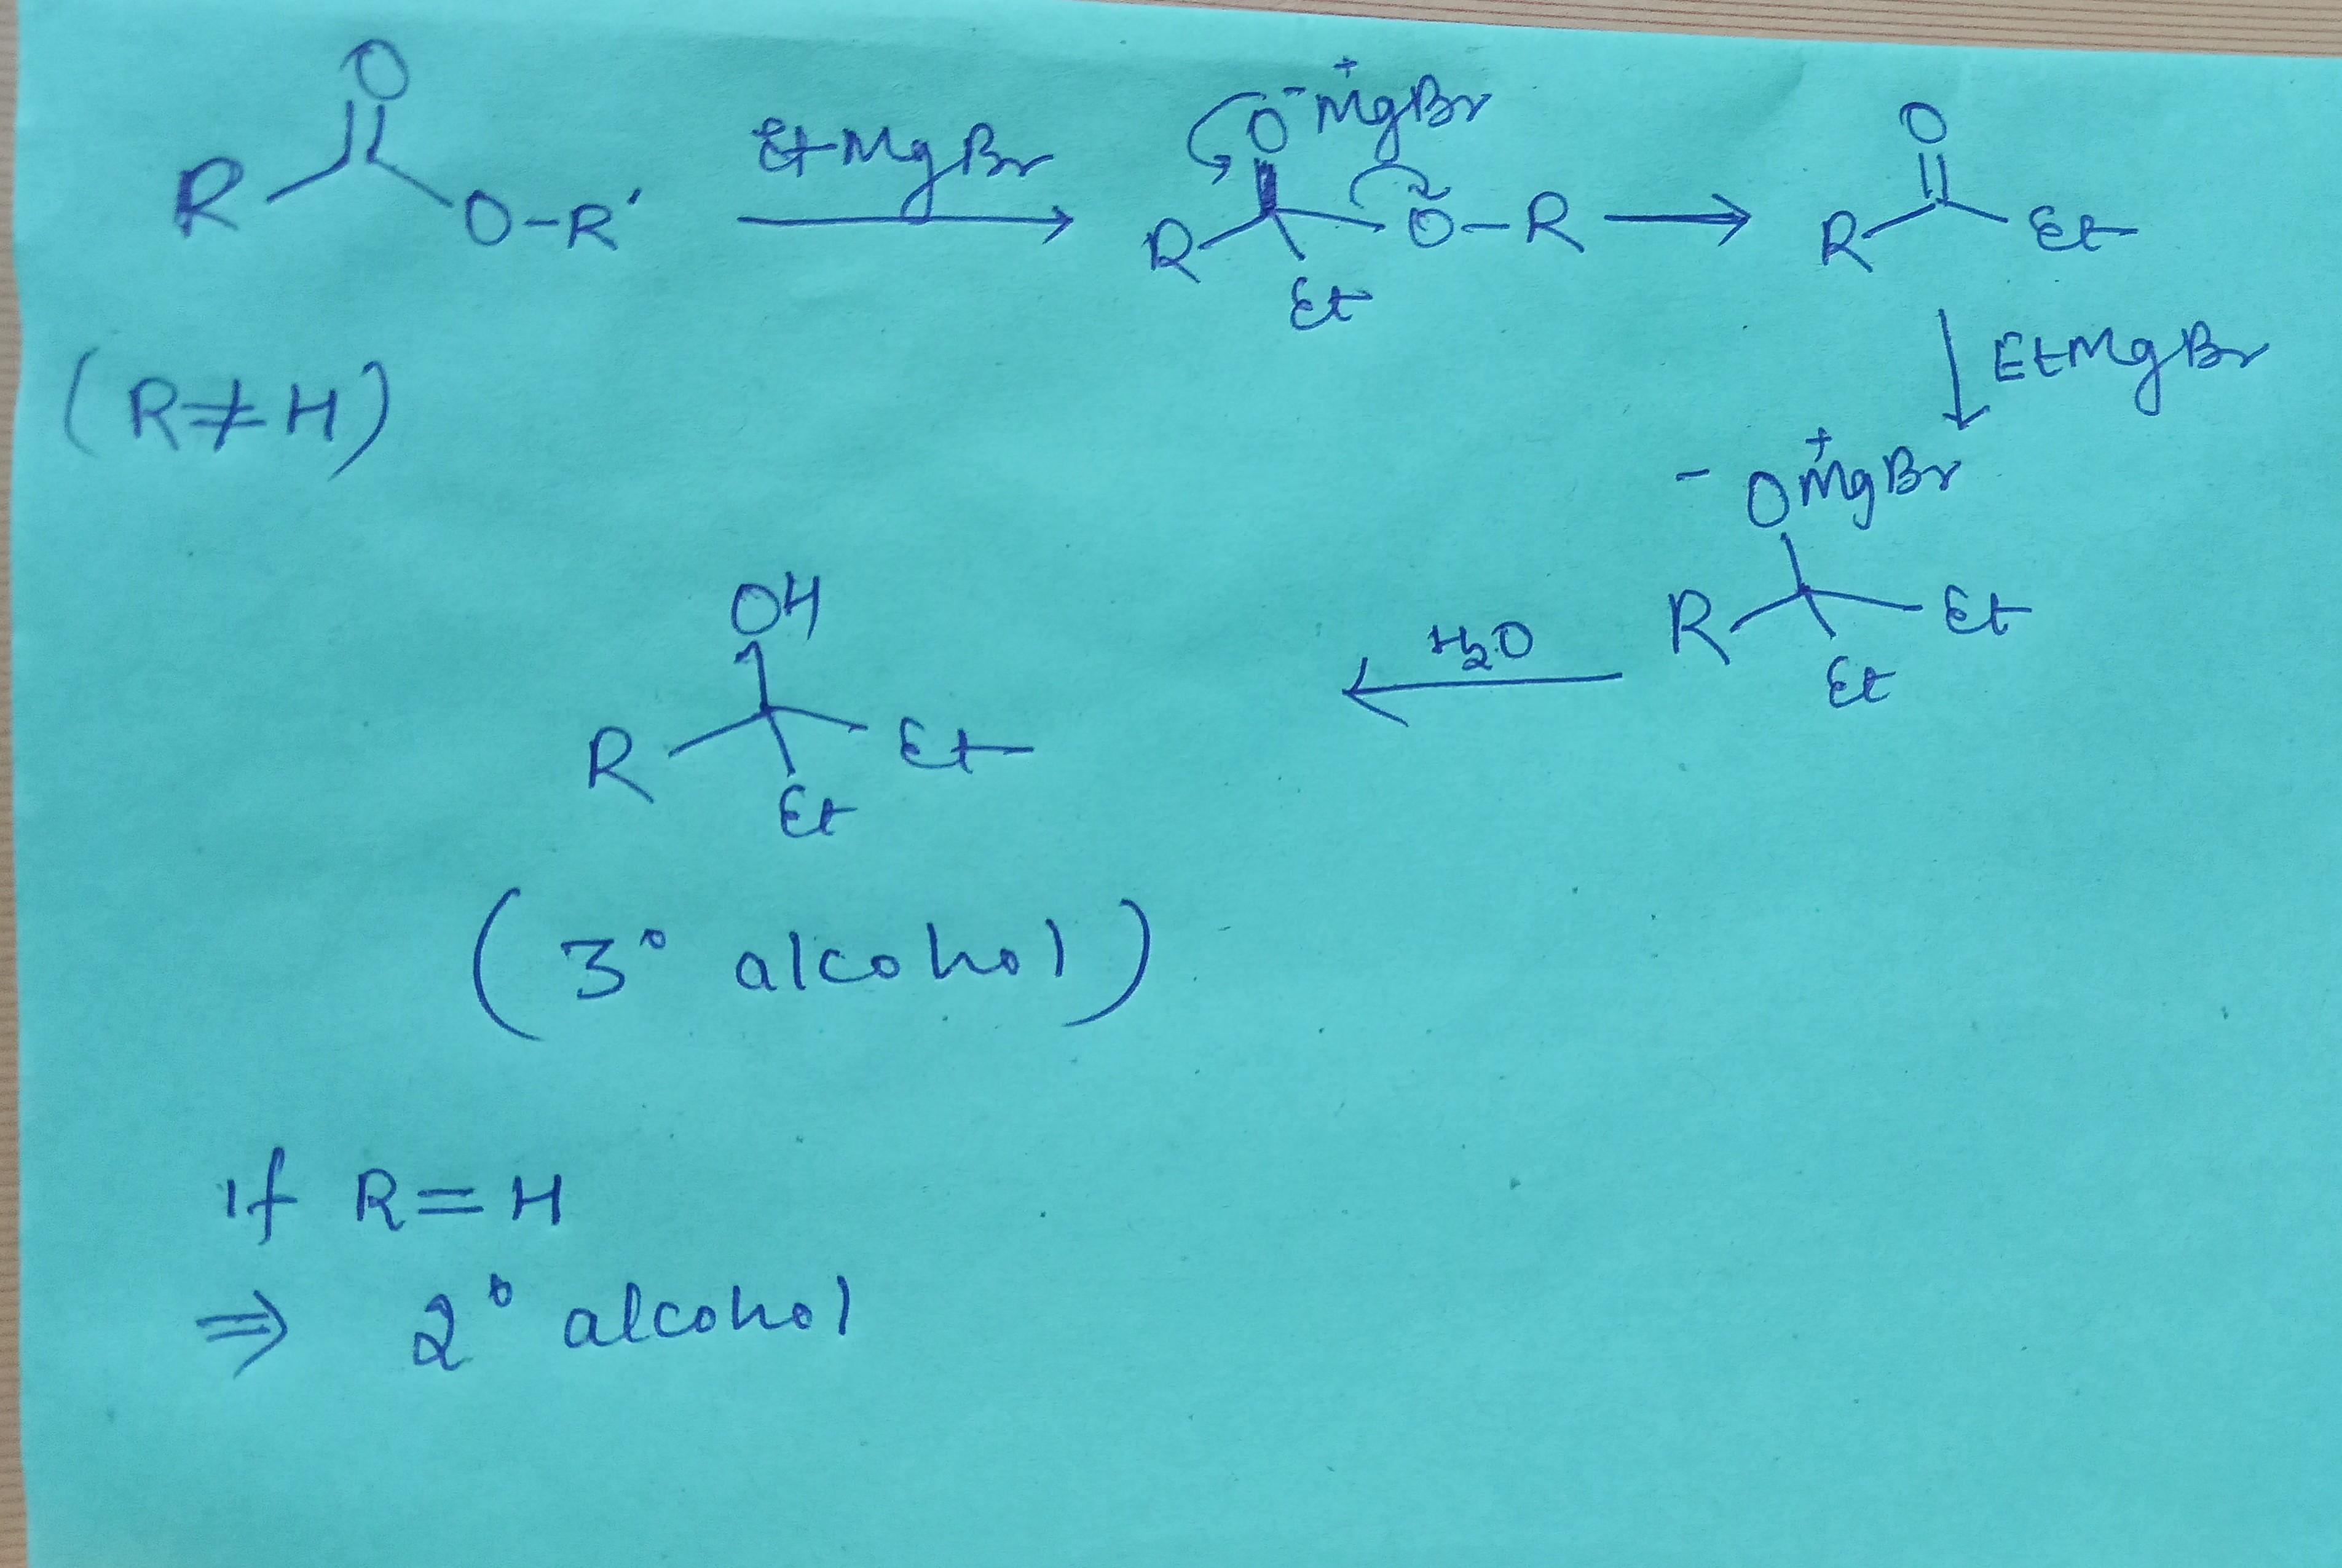 O
R
O-R'
(R≠H)
EtMgBr
O⁻ ⁺MgBr
R
O-R
Et
O
R
Et
EtMgBr
⁻ O ⁺MgBr
R
Et
Et
H₂O
OH
R
Et
Et
(3° alcohol)
if R=H
⇒ 2° alcohol